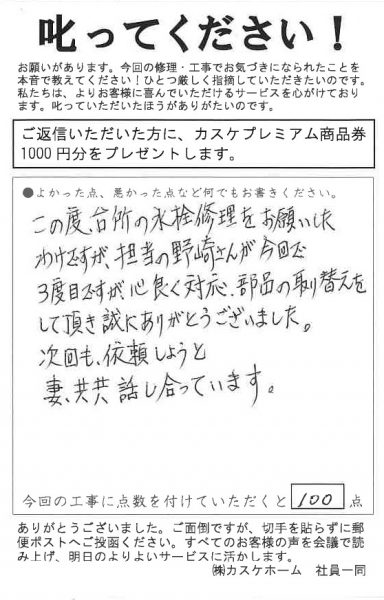 叱ってください！
お願いがあります。今回の修理・工事でお気づきになられたことを
本音で教えてください！ひとつ厳しく指摘していただきたいのです。
私たちは、よりお客様に喜んでいただけるサービスを心がけており
ます。叱っていただいたほうがありがたいのです。
ご返信いただいた方に、カスケプレミアム商品券
1000円分をプレゼントします。
●よかった点、悪かった点など何でもお書きください。
この度、台所の水栓修理をお願いした
わけですが、担当の野崎さんが今回で
3度目ですが、心良く対応、部品の取り替えを
して頂き誠にありがとうございました。
次回も、依頼しようと
妻、共共話し合っています。
今回の工事に点数を付けていただくと 100 点
ありがとうございました。ご面倒ですが、切手を貼らずに郵
便ポストへご投函ください。すべてのお客様の声を会議で読
み上げ、明日のよりよいサービスに活かします。
㈱カスケホーム　社員一同